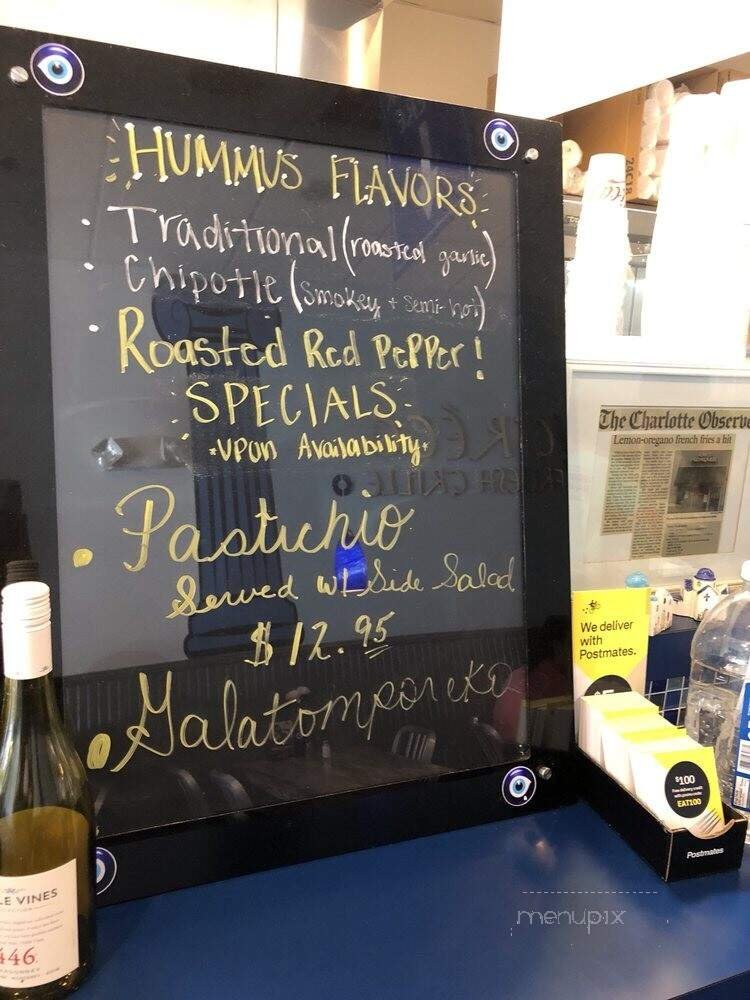 HUMMUS FLAVORS
• Traditional (roasted garlic)
• Chipotle (smokey + semi-hot)
• Roasted Red PePPer!
SPECIALS
*UPON Availability*
• Pastichio
Served w/ Side Salad
$12.95
• Galatomporeko
FRESH GRILL
The Charlotte Observe
Lemon-oregano french fries a hit
We deliver
with
Postmates.
$100
Free delivery credit
with promo code
EAT100
Postmates
LE VINES
446
menupix